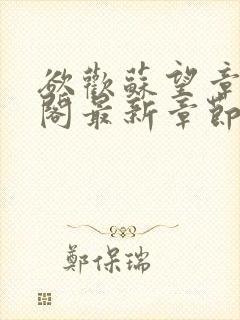 欲歡蘇望章
閣最新章節
鄭保瑞